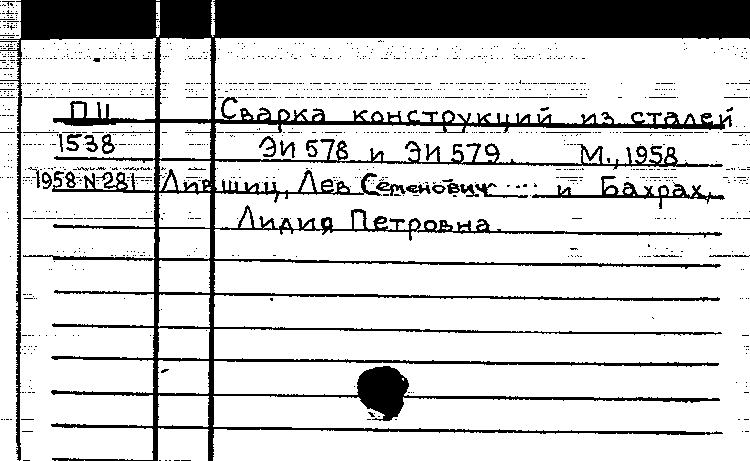 П 11 Сварка конструкций из сталей
1538 ЭИ 578 и ЭИ 579. М., 1958.
1958 N 281 Лившиц, Лев Семенович и Бахрах,
Лидия Петровна.